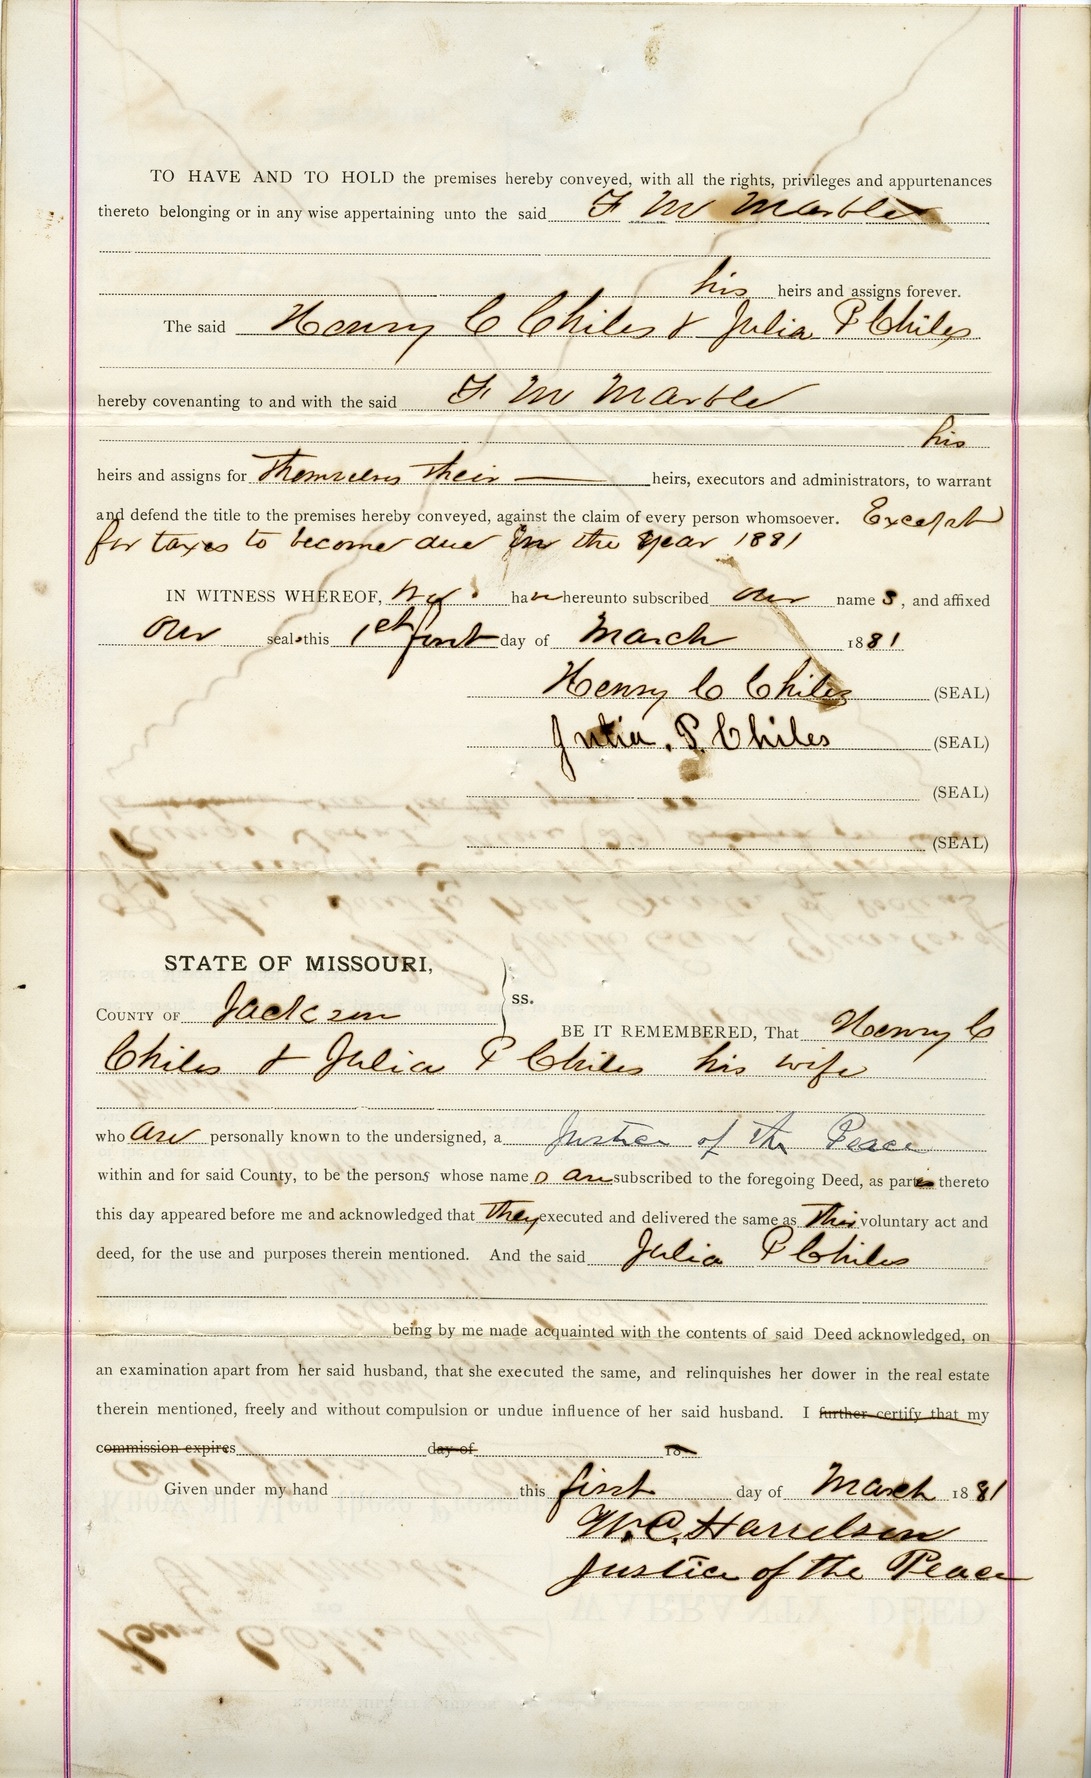 TO HAVE AND TO HOLD the premises hereby conveyed, with all the rights, privileges and appurtenances
thereto belonging or in any wise appertaining unto the said F M Marble
his heirs and assigns forever.
The said Henry C Chiles & Julia P Chiles
hereby covenanting to and with the said F. M Marble
his
heirs and assigns for themselves their heirs, executors and administrators, to warrant
and defend the title to the premises hereby conveyed, against the claim of every person whomsoever. Except
for taxes to become due in the year 1881
IN WITNESS WHEREOF, we have hereunto subscribed our names, and affixed
our seals this 1st first day of March 1881
Henry C Chiles (SEAL)
Julia. P. Chiles (SEAL)
(SEAL)
(SEAL)
STATE OF MISSOURI,
ss.
COUNTY OF Jackson
BE IT REMEMBERED, That Henry C
Chiles & Julia P Chiles his wife
who are personally known to the undersigned, a Justice of the Peace
within and for said County, to be the persons whose names are subscribed to the foregoing Deed, as parties thereto
this day appeared before me and acknowledged that they executed and delivered the same as their voluntary act and
deed, for the use and purposes therein mentioned. And the said Julia P Chiles
being by me made acquainted with the contents of said Deed acknowledged, on
an examination apart from her said husband, that she executed the same, and relinquishes her dower in the real estate
therein mentioned, freely and without compulsion or undue influence of her said husband. I further certify that my
commission expires day of 18
Given under my hand this first day of March 1881
W. C. Harrelson
Justice of the Peace